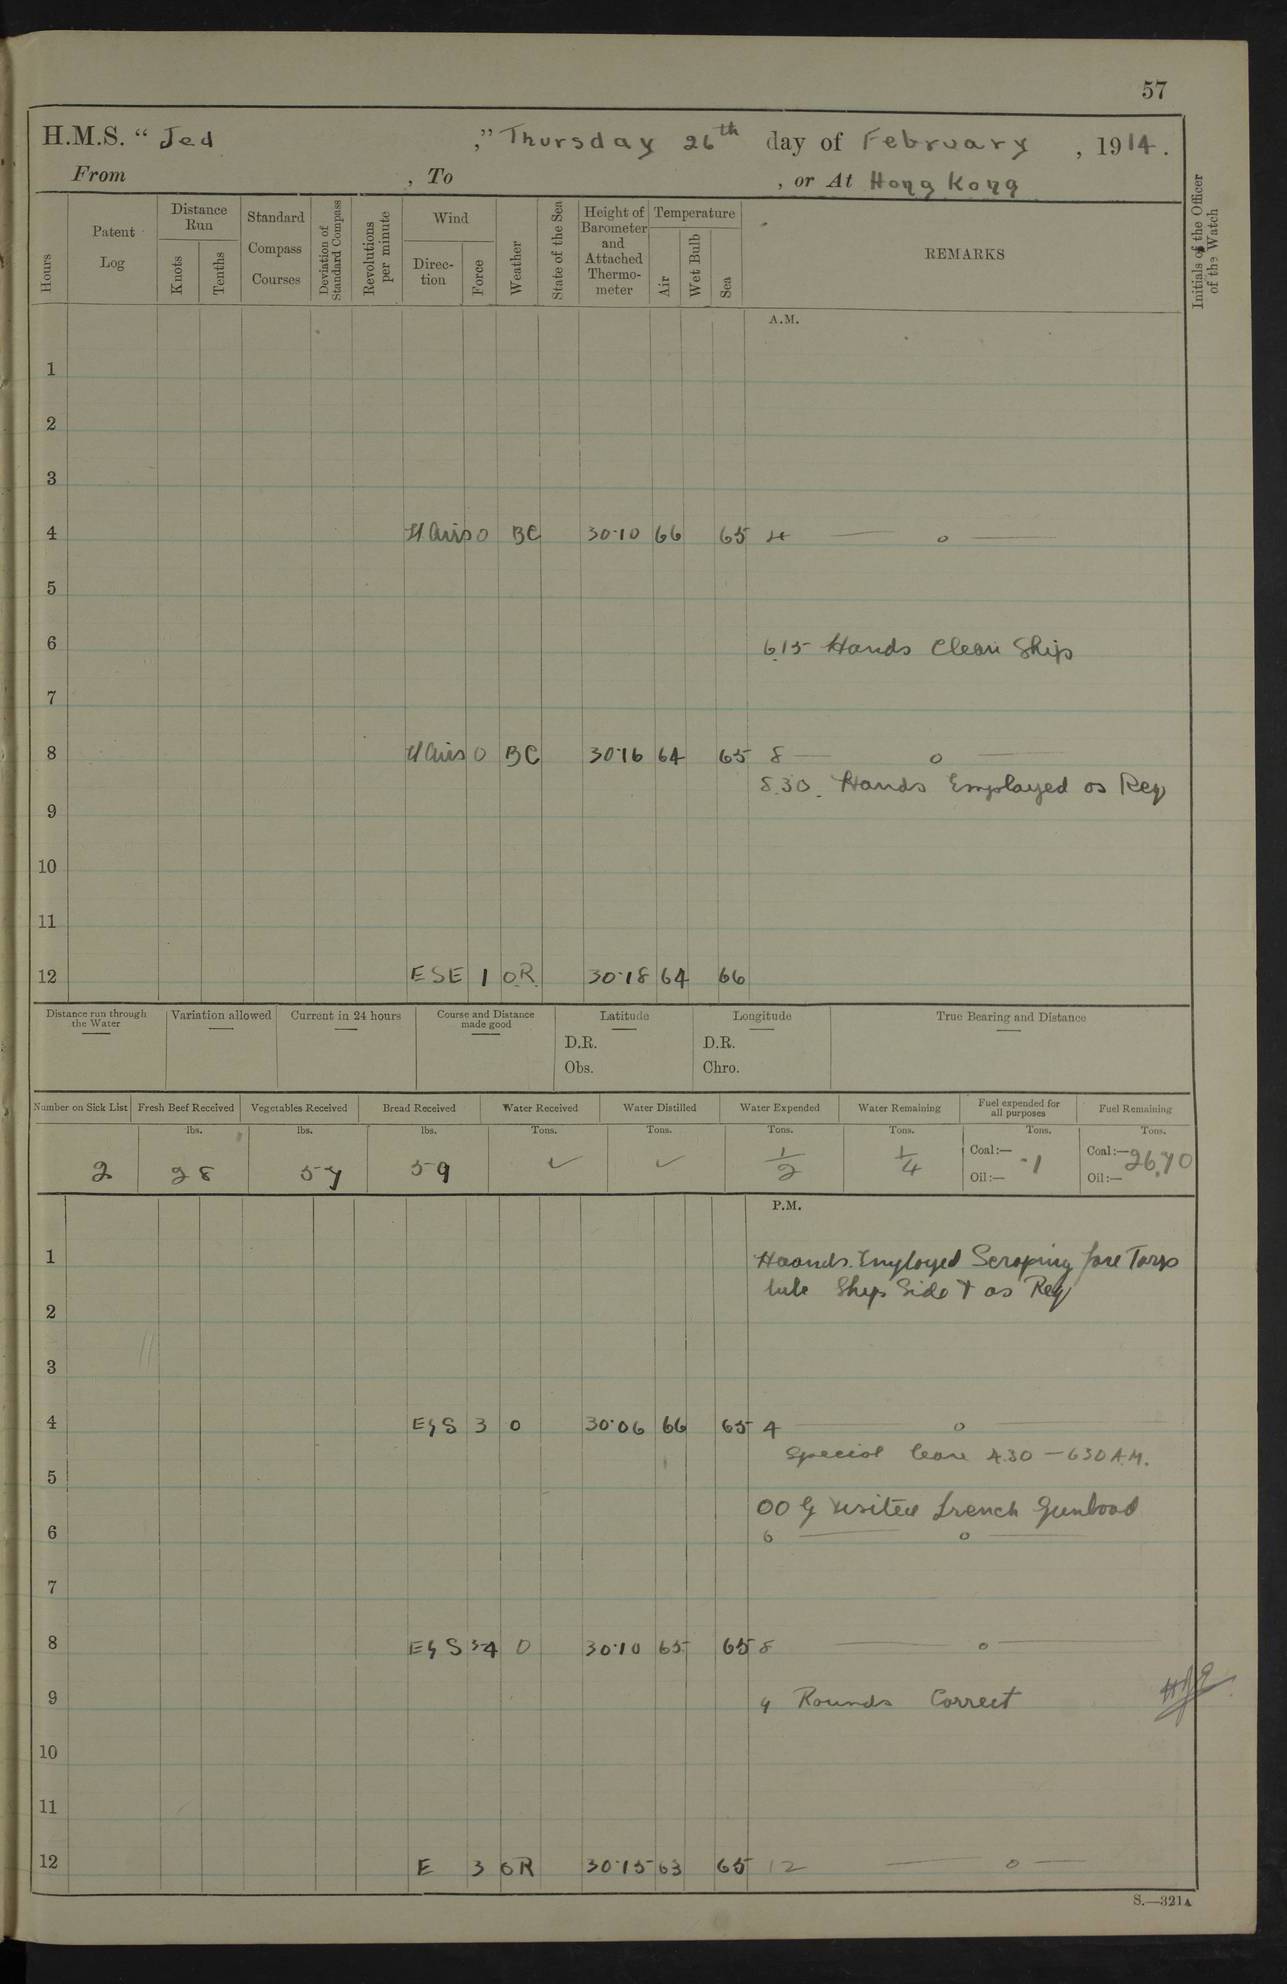 57
H.M.S. “ Jed ,” Thursday 26th day of February , 1914.
From , To , or At Hong Kong
Hours
Patent Log
Distance Run
Knots
Tenths
Standard Compass Courses
Deviation of Standard Compass
Revolutions per minute
Wind
Direction
Force
Weather
State of the Sea
Height of Barometer and Attached Thermometer
Temperature
Air
Wet Bulb
Sea
REMARKS
Initials of the Officer of the Watch
A.M.
1
2
3
4 Airs 0 BC 30.10 66 65 4 — o —
5
6 6.15 Hands Clean Ship
7
8 Airs 0 BC 30.16 64 65 8 — o —
8.30. Hands Employed as Req
9
10
11
12 ESE 1 OR 30.18 64 66
Distance run through the Water
Variation allowed
Current in 24 hours
Course and Distance made good
Latitude
D.R.
Obs.
Longitude
D.R.
Chro.
True Bearing and Distance
Number on Sick List
Fresh Beef Received
Vegetables Received
Bread Received
Water Received
Water Distilled
Water Expended
Water Remaining
Fuel expended for all purposes
Fuel Remaining
lbs. lbs. lbs. Tons. Tons. Tons. Tons. Tons. Tons.
2 28 57 59 ✓ ✓ 1/2 1/4 Coal:— .1 Coal:— 26.70
Oil:— Oil:—
P.M.
1 Haands. Employed Scraping fore Torp
tube Ships Side + as Req
2
3
4 E S 3 O 30.06 66 65 4 — o —
Special leave 4.30 — 630 A.M.
5
OOG visited French Gunboat
6 6 — o —
7
8 E S 3-4 O 30.10 65 65 8 — o —
9 9 Rounds Correct
10
11
12 E 3 OR 30.15 63 65 12 — o —
S.—321A